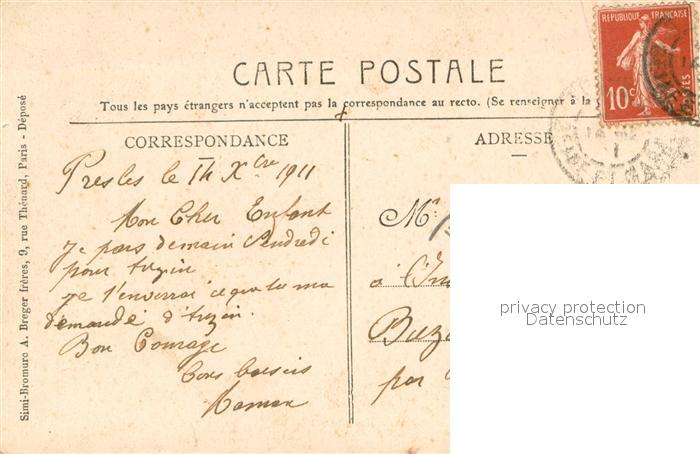 RÉPUBLIQUE FRANÇAISE
10c
CARTE POSTALE
Tous les pays étrangers n'acceptent pas la correspondance au recto. (Se renseigner à la
CORRESPONDANCE
ADRESSE
Presles le 14 Xbre 1911
Mon Cher Enfant
Je pars demain Vendredi
pour
Je t'enverrai ce que tu ma
demandé
Bon Courage
bons baisers
Maman
Mr
à
par
privacy protection
Datenschutz
Simi-Bromure A. Breger frères, 9, rue Thénard, Paris - Déposé